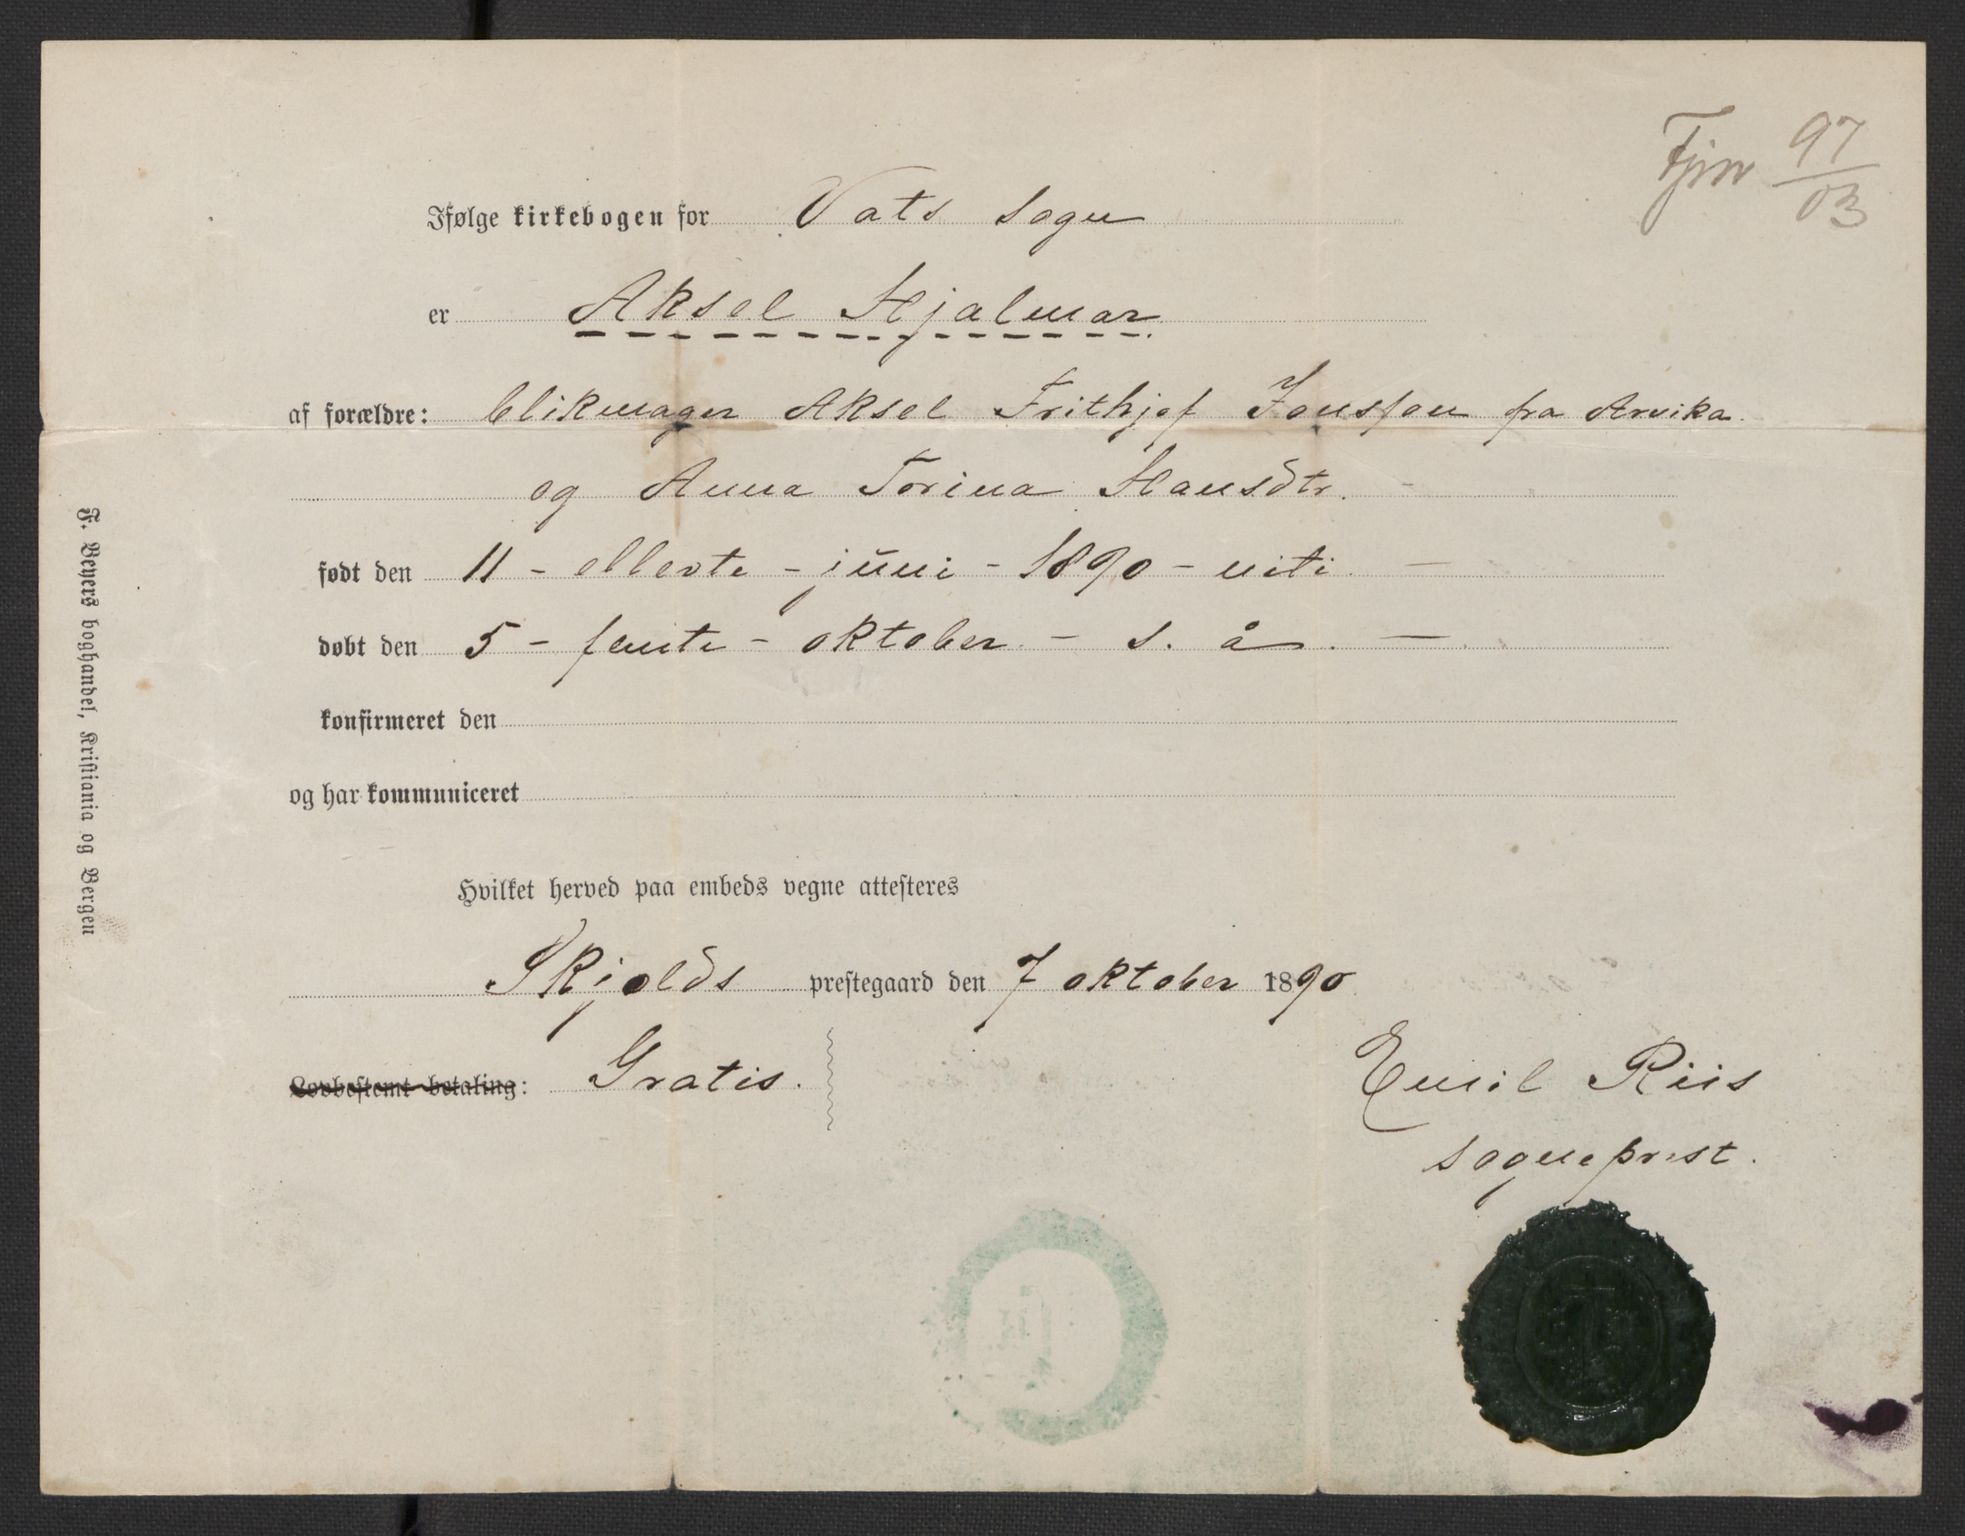 Fjnr 97/03
Ifølge kirkebogen for Vats sogn
er Aksel Hjalmar.
af forældre: blikmager Aksel Frithjof Jonsson fra Arvika.
og Anna Torina Hansdtr. -
født den 11 - ellevte - juni - 1890 - niti. -
døbt den 5 - femte - oktober - s. å. -
konfirmeret den
og har kommuniceret
Hvilket herved paa embeds vegne attesteres
Skjolds prestegaard den 7 oktober 1890
Lovbestemt betaling: Gratis.
Emil Riis
sogneprest.
F. Beyers boghandel, Kristiania og Bergen